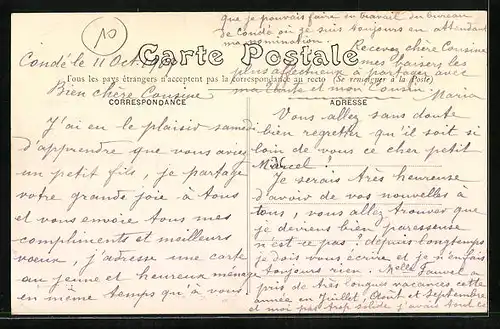 10
Condé le 11 Oct.
Carte Postale
Tous les pays étrangers n'acceptent pas la correspondance au recto (Se renseigner à la Poste)
CORRESPONDANCE
ADRESSE
Bien chère Cousine
J'ai eu le plaisir samedi
d'apprendre que vous aviez
un petit fils, je partage
votre grande joie à tous
et vous envoie tous mes
compliments et meilleurs
vœux, j'adresse une carte
au jeune et heureux ménage
en même temps qu'à vous
Vous allez sans doute
bien regretter qu'il soit si
loin de vous ce cher petit
Marcel !
Je serais très heureuse
d'avoir de vos nouvelles à
tous, vous allez trouver que
je deviens bien paresseuse
n'est ce pas ? depuis longtemps
je dois vous écrire et je n'en fais
toujours rien. Melle
pris de très longues vacances cette
année en Juillet, Août et Septembre
et moi pas trop solide j'avais tout ce
que je pouvais faire en travail du bureau
de Condé où je suis toujours en attendant
ma nomination.
Recevez chère Cousine
mes baisers les
plus affectueux à partager avec
ma tante et mon Cousin
Maria